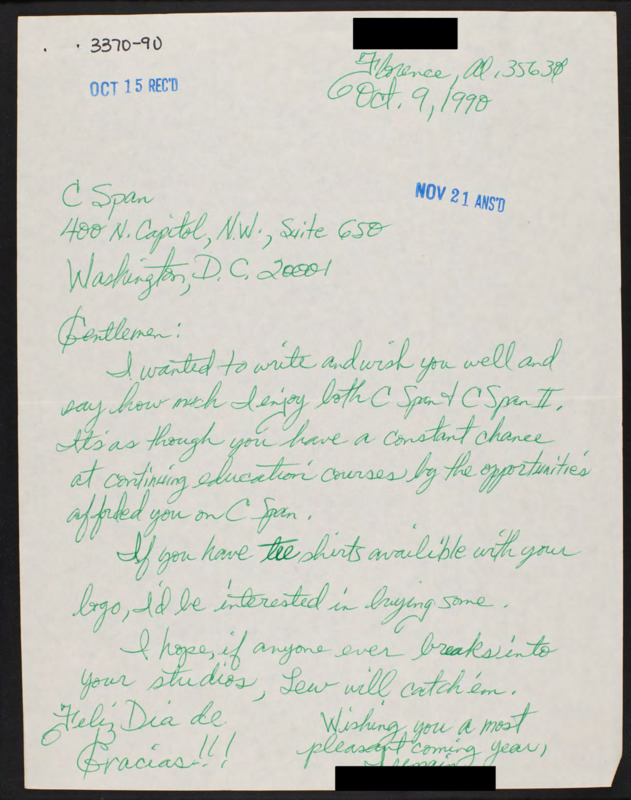 3370-90
OCT 15 REC'D
Florence, Al. 35630
Oct. 9, 1990
NOV 21 ANS'D
C Span
400 N. Capitol, N.W., Suite 650
Washington, D.C. 20001
Gentlemen:
I wanted to write and wish you well and
say how much I enjoy both C Span & C Span II.
It's as though you have a constant chance
at continuing education courses by the opportunities
afforded you on C Span.
If you have tee shirts availible with your
logo, I'd be interested in buying some.
I hope, if anyone ever breaks into
your studios, Lew will catch 'em.
Feliz Dia de
Gracias!!!
Wishing you a most
pleasant coming year,
I remain